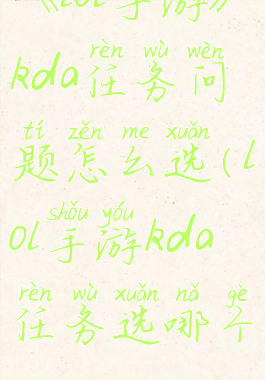 《lol手游》
rèn wù wèn
kda任务问
tí zěn me xuǎn
题怎么选(l
shǒu yóu
ol手游kda
rèn wù xuǎn nǎ gè
任务选哪个